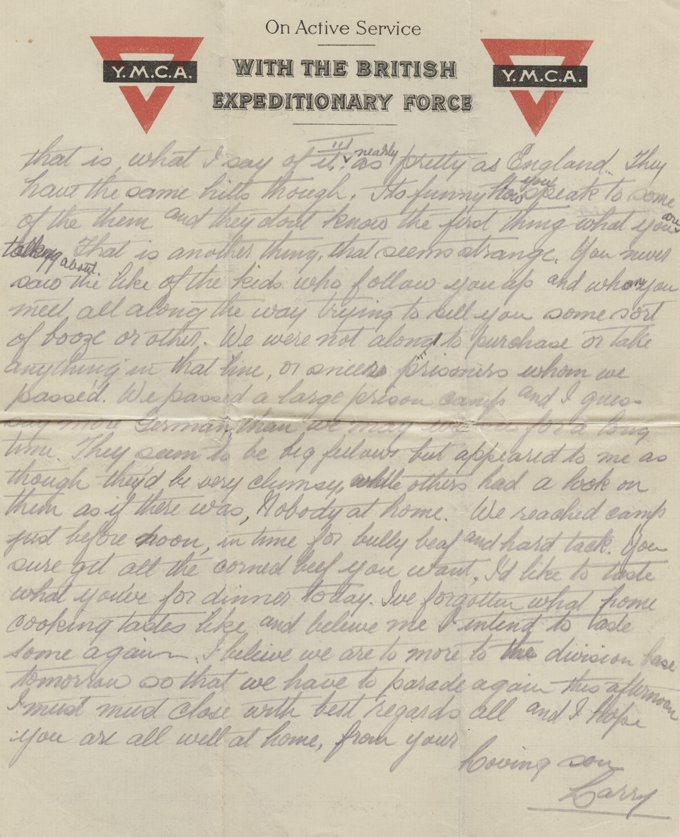 On Active Service
WITH THE BRITISH
EXPEDITIONARY FORCE
Y.M.C.A.
Y.M.C.A.
that is, what I say of it, nearly as pretty as England. They
have the same hills though. Its funny how you speak to some
of the them and they dont know the first thing what you are
talking about. That is another thing, that seems strange. You never
saw the like of the kids who follow you up and whom you
meet all along the way trying to sell you some sort
of booze or other. We were not along to purchase or take
anything in that line, or prisoners whom we
passed. We passed a large prison camp and I guess
saw more Germans than we may for a long
time. They seem to be big fellows but appeared to me as
though they'd be very clumsy, while others had a look on
them as if there was, Nobody at home. We reached camp
just before noon, in time for bully beef and hard tack. You
sure get all the corned beef you want, I'd like to taste
what you've for dinner today. I've forgotten what home
cooking tastes like and beleive me I intend to taste
some again. I beleive we are to move to the division base
tomorrow so that we have to parade again this afternoon
I must must close with best regards all and I hope
you are all well at home, from your
Loving son
Larry